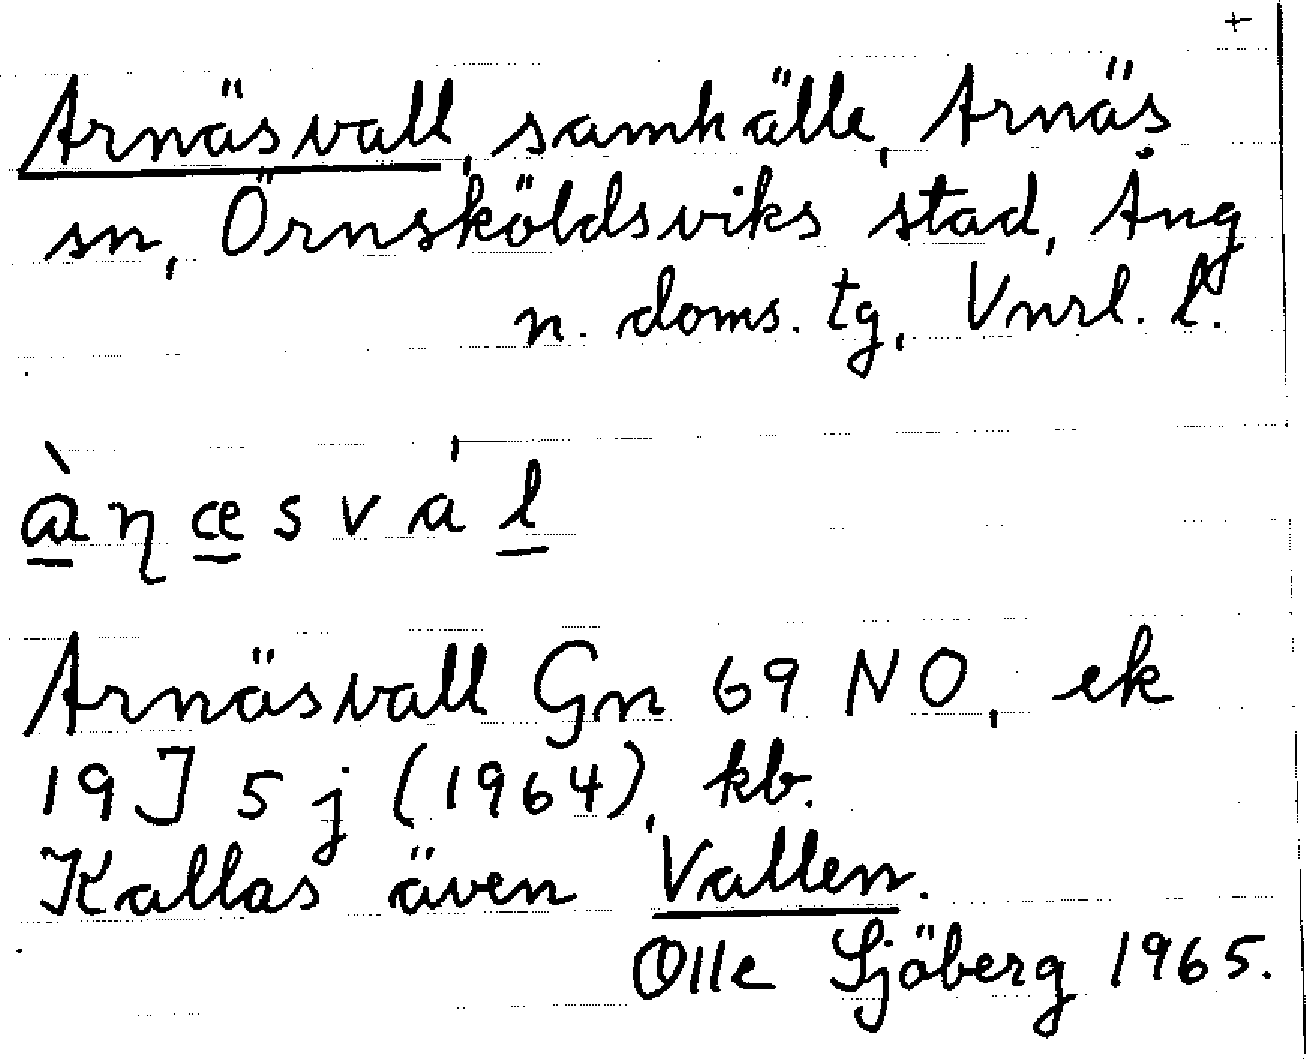 +
Arnäsvall, samhälle, Arnäs
sn, Örnsköldsviks stad, Ång
n. doms. tg, Vnrl. l.
ɑ̱̀ ɳ æ̱ s v á ḻ
Arnäsvall Gn 69 NO, ek
19J 5j (1964), kb.
Kallas även Vallen.
Olle Sjöberg 1965.